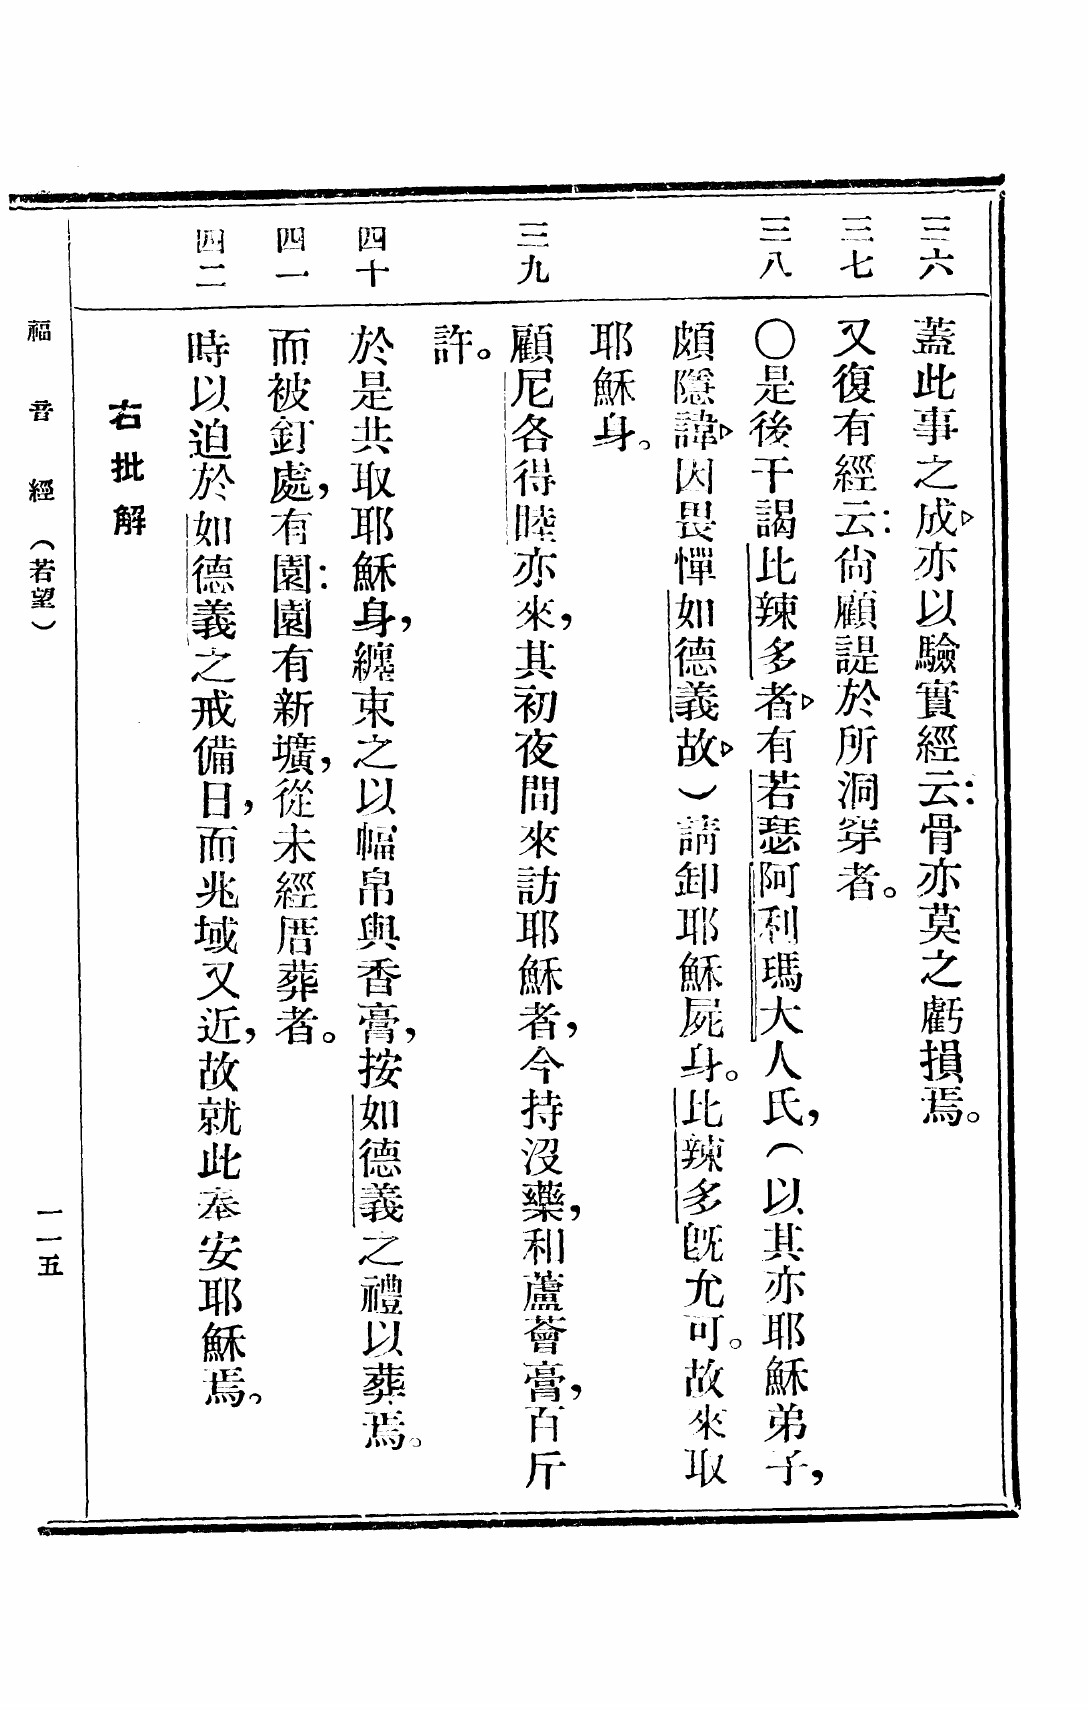 三六 蓋此事之成▹亦以驗實經云:骨亦莫之虧損焉。
三七 又復有經云:尙顧諟於所洞穿者。
三八 〇是後干謁比辣多者▹有若瑟阿利瑪大人氏,(以其亦耶穌弟子,
頗隱諱▹因畏憚如德義故▹)請卸耶穌屍身。比辣多旣允可。故來取
耶穌身。
三九 顧尼各得睦亦來,其初夜間來訪耶穌者,今持沒藥,和蘆薈膏,百斤
許。
四十 於是共取耶穌身,纏束之以幅帛與香膏,按如德義之禮以葬焉。
四一 而被釘處,有園:園有新壙,從未經厝葬者。
四二 時以迫於如德義之戒備日,而兆域又近,故就此奉安耶穌焉。
右批解
福音經(若望) 一一五